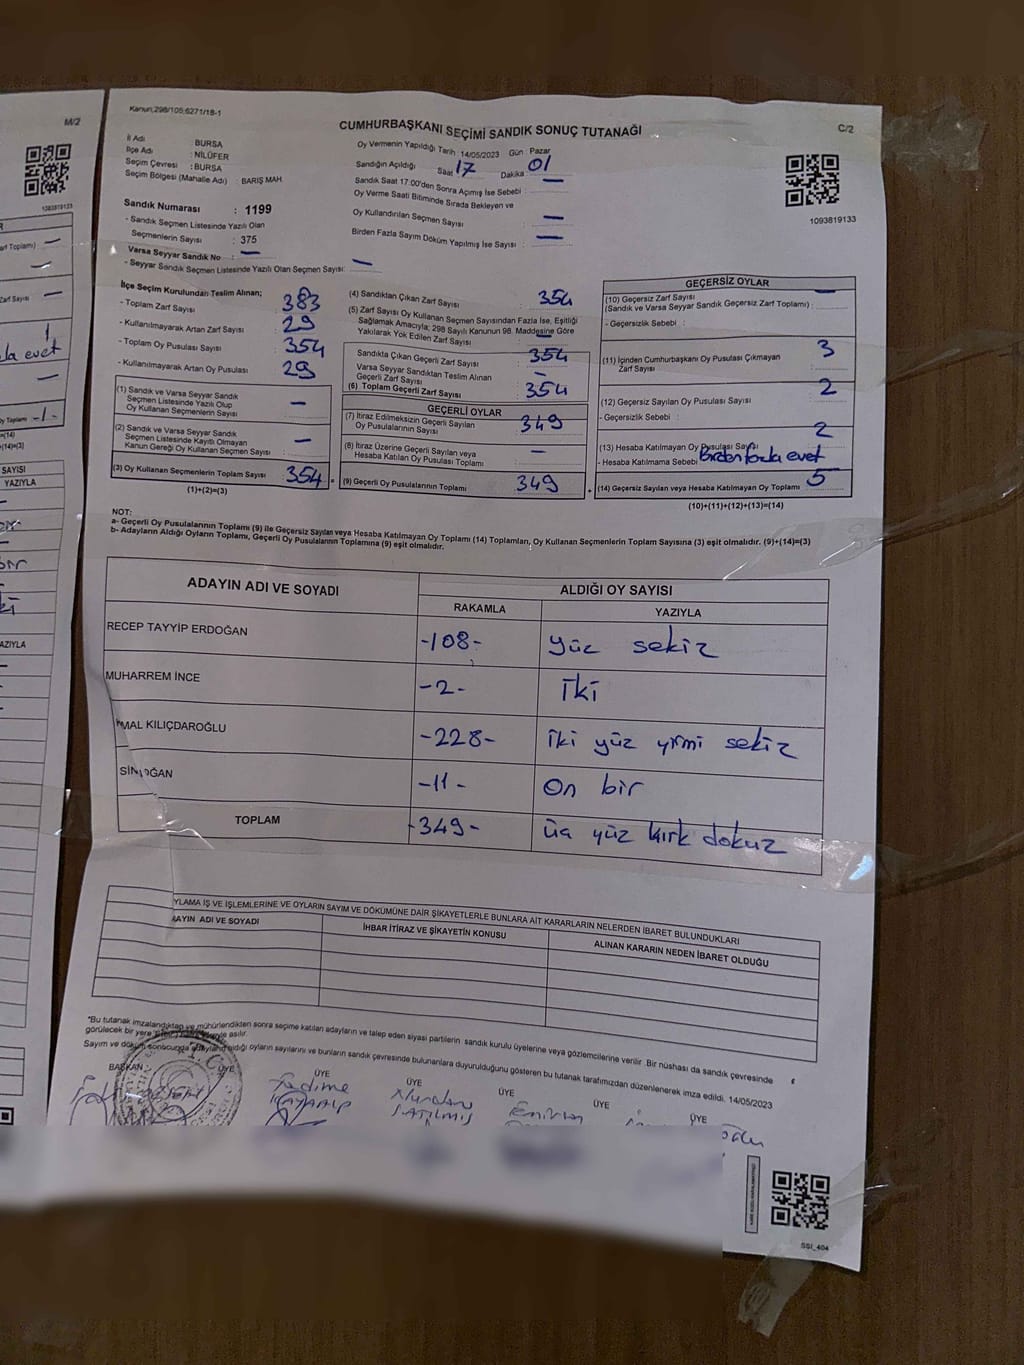 Kanun;298/105;6271/18-1
CUMHURBAŞKANI SEÇİMİ SANDIK SONUÇ TUTANAĞI
C/2
M/2
İl Adı : BURSA
İlçe Adı : NİLÜFER
Seçim Çevresi : BURSA
Seçim Bölgesi (Mahalle Adı) : BARIŞ MAH.
Oy Vermenin Yapıldığı Tarih : 14/05/2023 Gün : Pazar
Sandığın Açıldığı Saat : 17 Dakika : 01
Sandık Saat 17:00'den Sonra Açılmış İse Sebebi : —
Oy Verme Saati Bitiminde Sırada Bekleyen ve
Oy Kullandırılan Seçmen Sayısı : —
Birden Fazla Sayım Döküm Yapılmış İse Sayısı : —
1093819133
1093819133
Sandık Numarası : 1199
- Sandık Seçmen Listesinde Yazılı Olan
Seçmenlerin Sayısı : 375
Varsa Seyyar Sandık No : —
- Seyyar Sandık Seçmen Listesinde Yazılı Olan Seçmen Sayısı: —
İlçe Seçim Kurulundan Teslim Alınan;
- Toplam Zarf Sayısı : 383
- Kullanılmayarak Artan Zarf Sayısı : 29
- Toplam Oy Pusulası Sayısı : 354
- Kullanılmayarak Artan Oy Pusulası : 29
(1) Sandık ve Varsa Seyyar Sandık
Seçmen Listesinde Yazılı Olup
Oy Kullanan Seçmenlerin Sayısı : —
(2) Sandık ve Varsa Seyyar Sandık
Seçmen Listesinde Kayıtlı Olmayan
Kanun Gereği Oy Kullanan Seçmen Sayısı : —
(3) Oy Kullanan Seçmenlerin Toplam Sayısı : 354
(1)+(2)=(3)
(4) Sandıktan Çıkan Zarf Sayısı : 354
(5) Zarf Sayısı Oy Kullanan Seçmen Sayısından Fazla İse, Eşitliği
Sağlamak Amacıyla; 298 Sayılı Kanunun 98. Maddesine Göre
Yakılarak Yok Edilen Zarf Sayısı : —
Sandıkta Çıkan Geçerli Zarf Sayısı : 354
Varsa Seyyar Sandıktan Teslim Alınan
Geçerli Zarf Sayısı : —
(6) Toplam Geçerli Zarf Sayısı : 354
GEÇERLİ OYLAR
(7) İtiraz Edilmeksizin Geçerli Sayılan
Oy Pusulalarının Sayısı : 349
(8) İtiraz Üzerine Geçerli Sayılan veya
Hesaba Katılan Oy Pusulası Toplamı : —
(9) Geçerli Oy Pusulalarının Toplamı : 349
GEÇERSİZ OYLAR
(10) Geçersiz Zarf Sayısı
(Sandık ve Varsa Seyyar Sandık Geçersiz Zarf Toplamı) : —
- Geçersizlik Sebebi :
(11) İçinden Cumhurbaşkanı Oy Pusulası Çıkmayan
Zarf Sayısı : 3
(12) Geçersiz Sayılan Oy Pusulası Sayısı : 2
- Geçersizlik Sebebi :
(13) Hesaba Katılmayan Oy Pusulası Sayısı : 2
- Hesaba Katılmama Sebebi : Birden fazla evet
(14) Geçersiz Sayılan veya Hesaba Katılmayan Oy Toplamı : 5
(10)+(11)+(12)+(13)=(14)
NOT:
a- Geçerli Oy Pusulalarının Toplamı (9) ile Geçersiz Sayılan veya Hesaba Katılmayan Oy Toplamı (14) Toplamları, Oy Kullanan Seçmenlerin Toplam Sayısına (3) eşit olmalıdır. (9)+(14)=(3)
b- Adayların Aldığı Oyların Toplamı, Geçerli Oy Pusulalarının Toplamına (9) eşit olmalıdır.
ADAYIN ADI VE SOYADI ALDIĞI OY SAYISI
RAKAMLA YAZIYLA
RECEP TAYYİP ERDOĞAN -108- yüz sekiz
MUHARREM İNCE -2- İki
MAL KILIÇDAROĞLU -228- iki yüz yirmi sekiz
SİN OĞAN -11- On bir
TOPLAM -349- üç yüz kırk dokuz
YLAMA İŞ VE İŞLEMLERİNE VE OYLARIN SAYIM VE DÖKÜMÜNE DAİR ŞİKAYETLERLE BUNLARA AİT KARARLARIN NELERDEN İBARET BULUNDUKLARI
AYIN ADI VE SOYADI İHBAR İTİRAZ VE ŞİKAYETİN KONUSU ALINAN KARARIN NEDEN İBARET OLDUĞU
*Bu tutanak imzalandıktan ve mühürlendikten sonra seçime katılan adayların ve talep eden siyasi partilerin sandık kurulu üyelerine veya gözlemcilerine verilir. Bir nüshası da sandık çevresinde
görülecek bir yere asılır.
Sayım ve döküm sonucunda adayların aldığı oyların sayılarını ve bunların sandık çevresinde bulunanlara duyurulduğunu gösteren bu tutanak tarafımızdan düzenlenerek imza edildi. 14/05/2023
BAŞKAN ÜYE ÜYE ÜYE ÜYE ÜYE ÜYE
Fadime
Nurdan
SATILMIŞ
SSİ_404